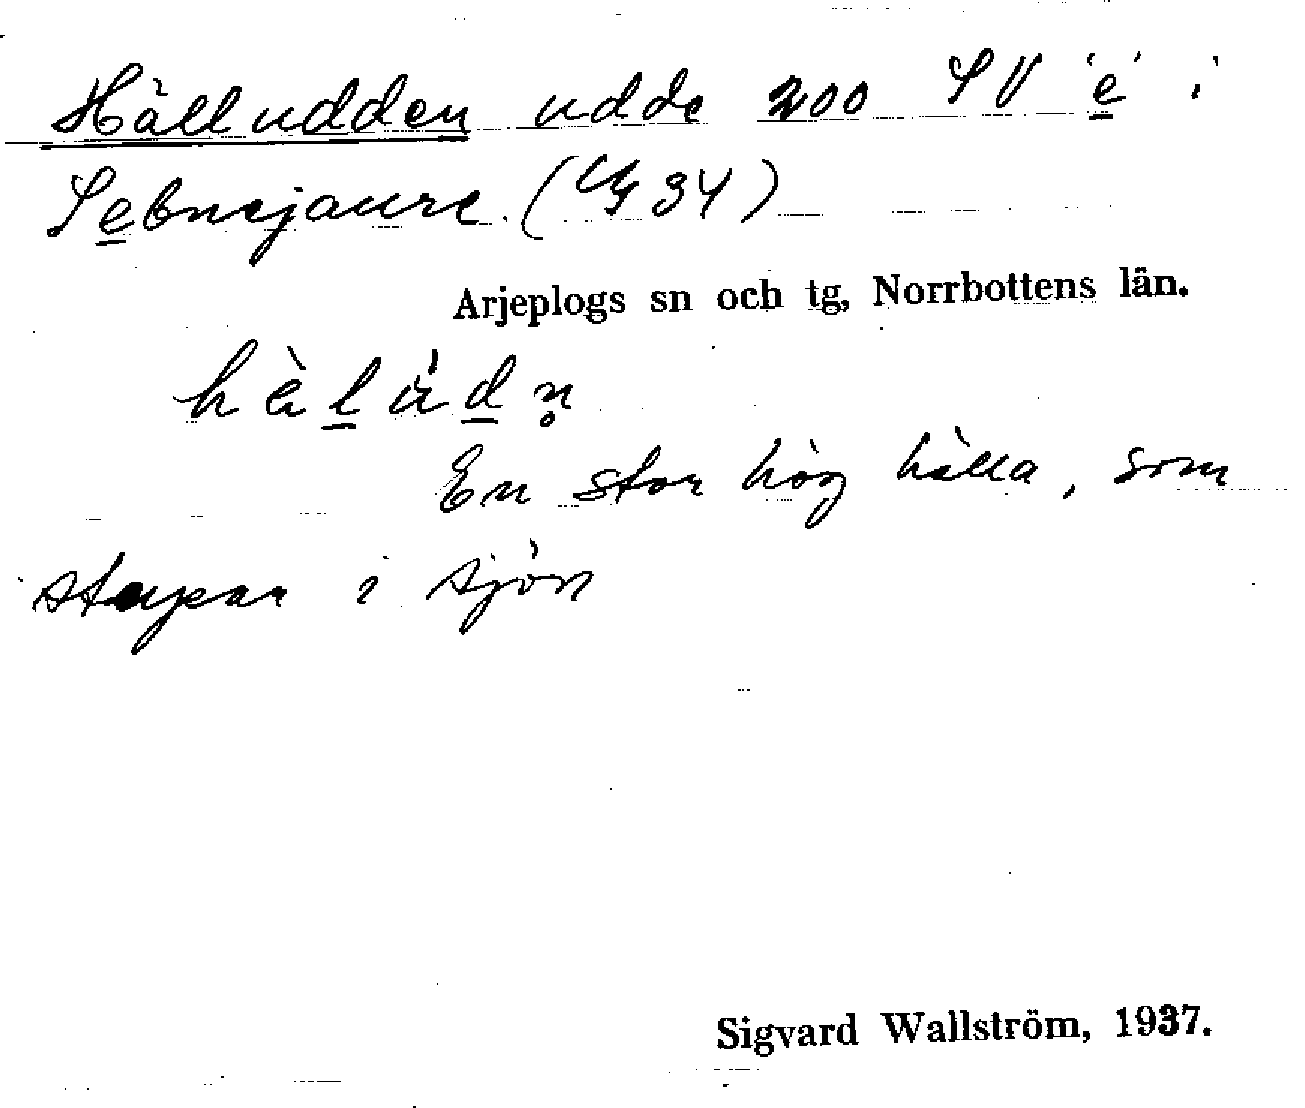 Hälludden udde 200 SV 'e' i
Sebnejaure (G 34)
Arjeplogs sn och tg, Norrbottens län.
En stor hög hälla, som
stupar i sjön
Sigvard Wallström, 1937.